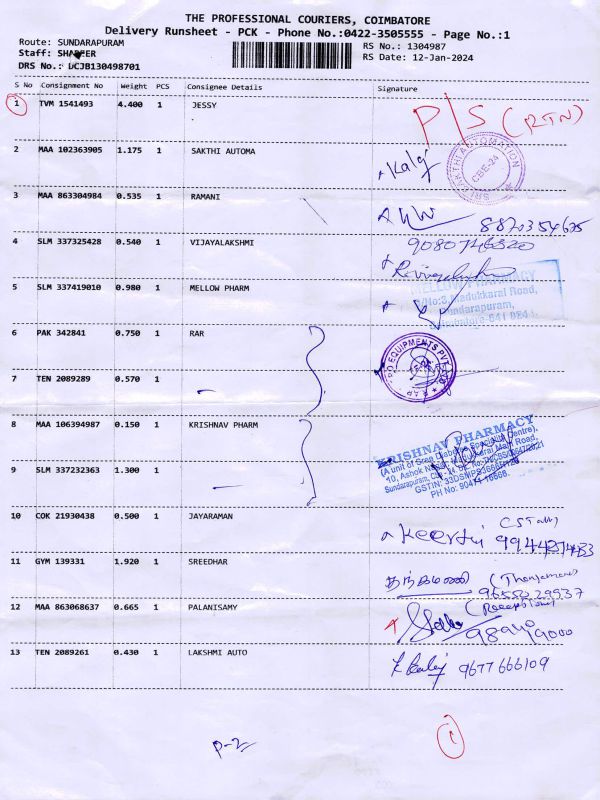 THE PROFESSIONAL COURIERS, COIMBATORE
Delivery Runsheet - PCK - Phone No.:0422-3505555 - Page No.:1
Route: SUNDARAPURAM
RS No.: 1304987
Staff:
RS Date: 12-Jan-2024
DRS No.: DCJB130498701
S No Consignment No Weight PCS Consignee Details Signature
1 TVM 1541493 4.400 1 JESSY P/S (RTN)
2 MAA 102363905 1.175 1 SAKTHI AUTOMA Kalaj
SRI SAKTHI AUTOMATION CBE-24
3 MAA 863304984 0.535 1 RAMANI
4 SLM 337325428 0.540 1 VIJAYALAKSHMI
5 SLM 337419010 0.980 1 MELLOW PHARM
MELLOW PHARMACY
Madukkarai Road,
Sundarapuram,
6 PAK 342841 0.750 1 RAR
EQUIPMENTS PVT LTD
7 TEN 2089289 0.570 1
8 MAA 106394987 0.150 1 KRISHNAV PHARM
KRISHNAV PHARMACY
(A unit of Sree Diabetes Speciality Centre),
10, Ashok Nagar, Madukkarai Main Road,
9 SLM 337232363 1.300 1
10 COK 21930438 0.500 1 JAYARAMAN
11 GYM 139331 1.920 1 SREEDHAR தங்கமணி
12 MAA 863068637 0.665 1 PALANISAMY
13 TEN 2089261 0.430 1 LAKSHMI AUTO 9677666109
P-2
1